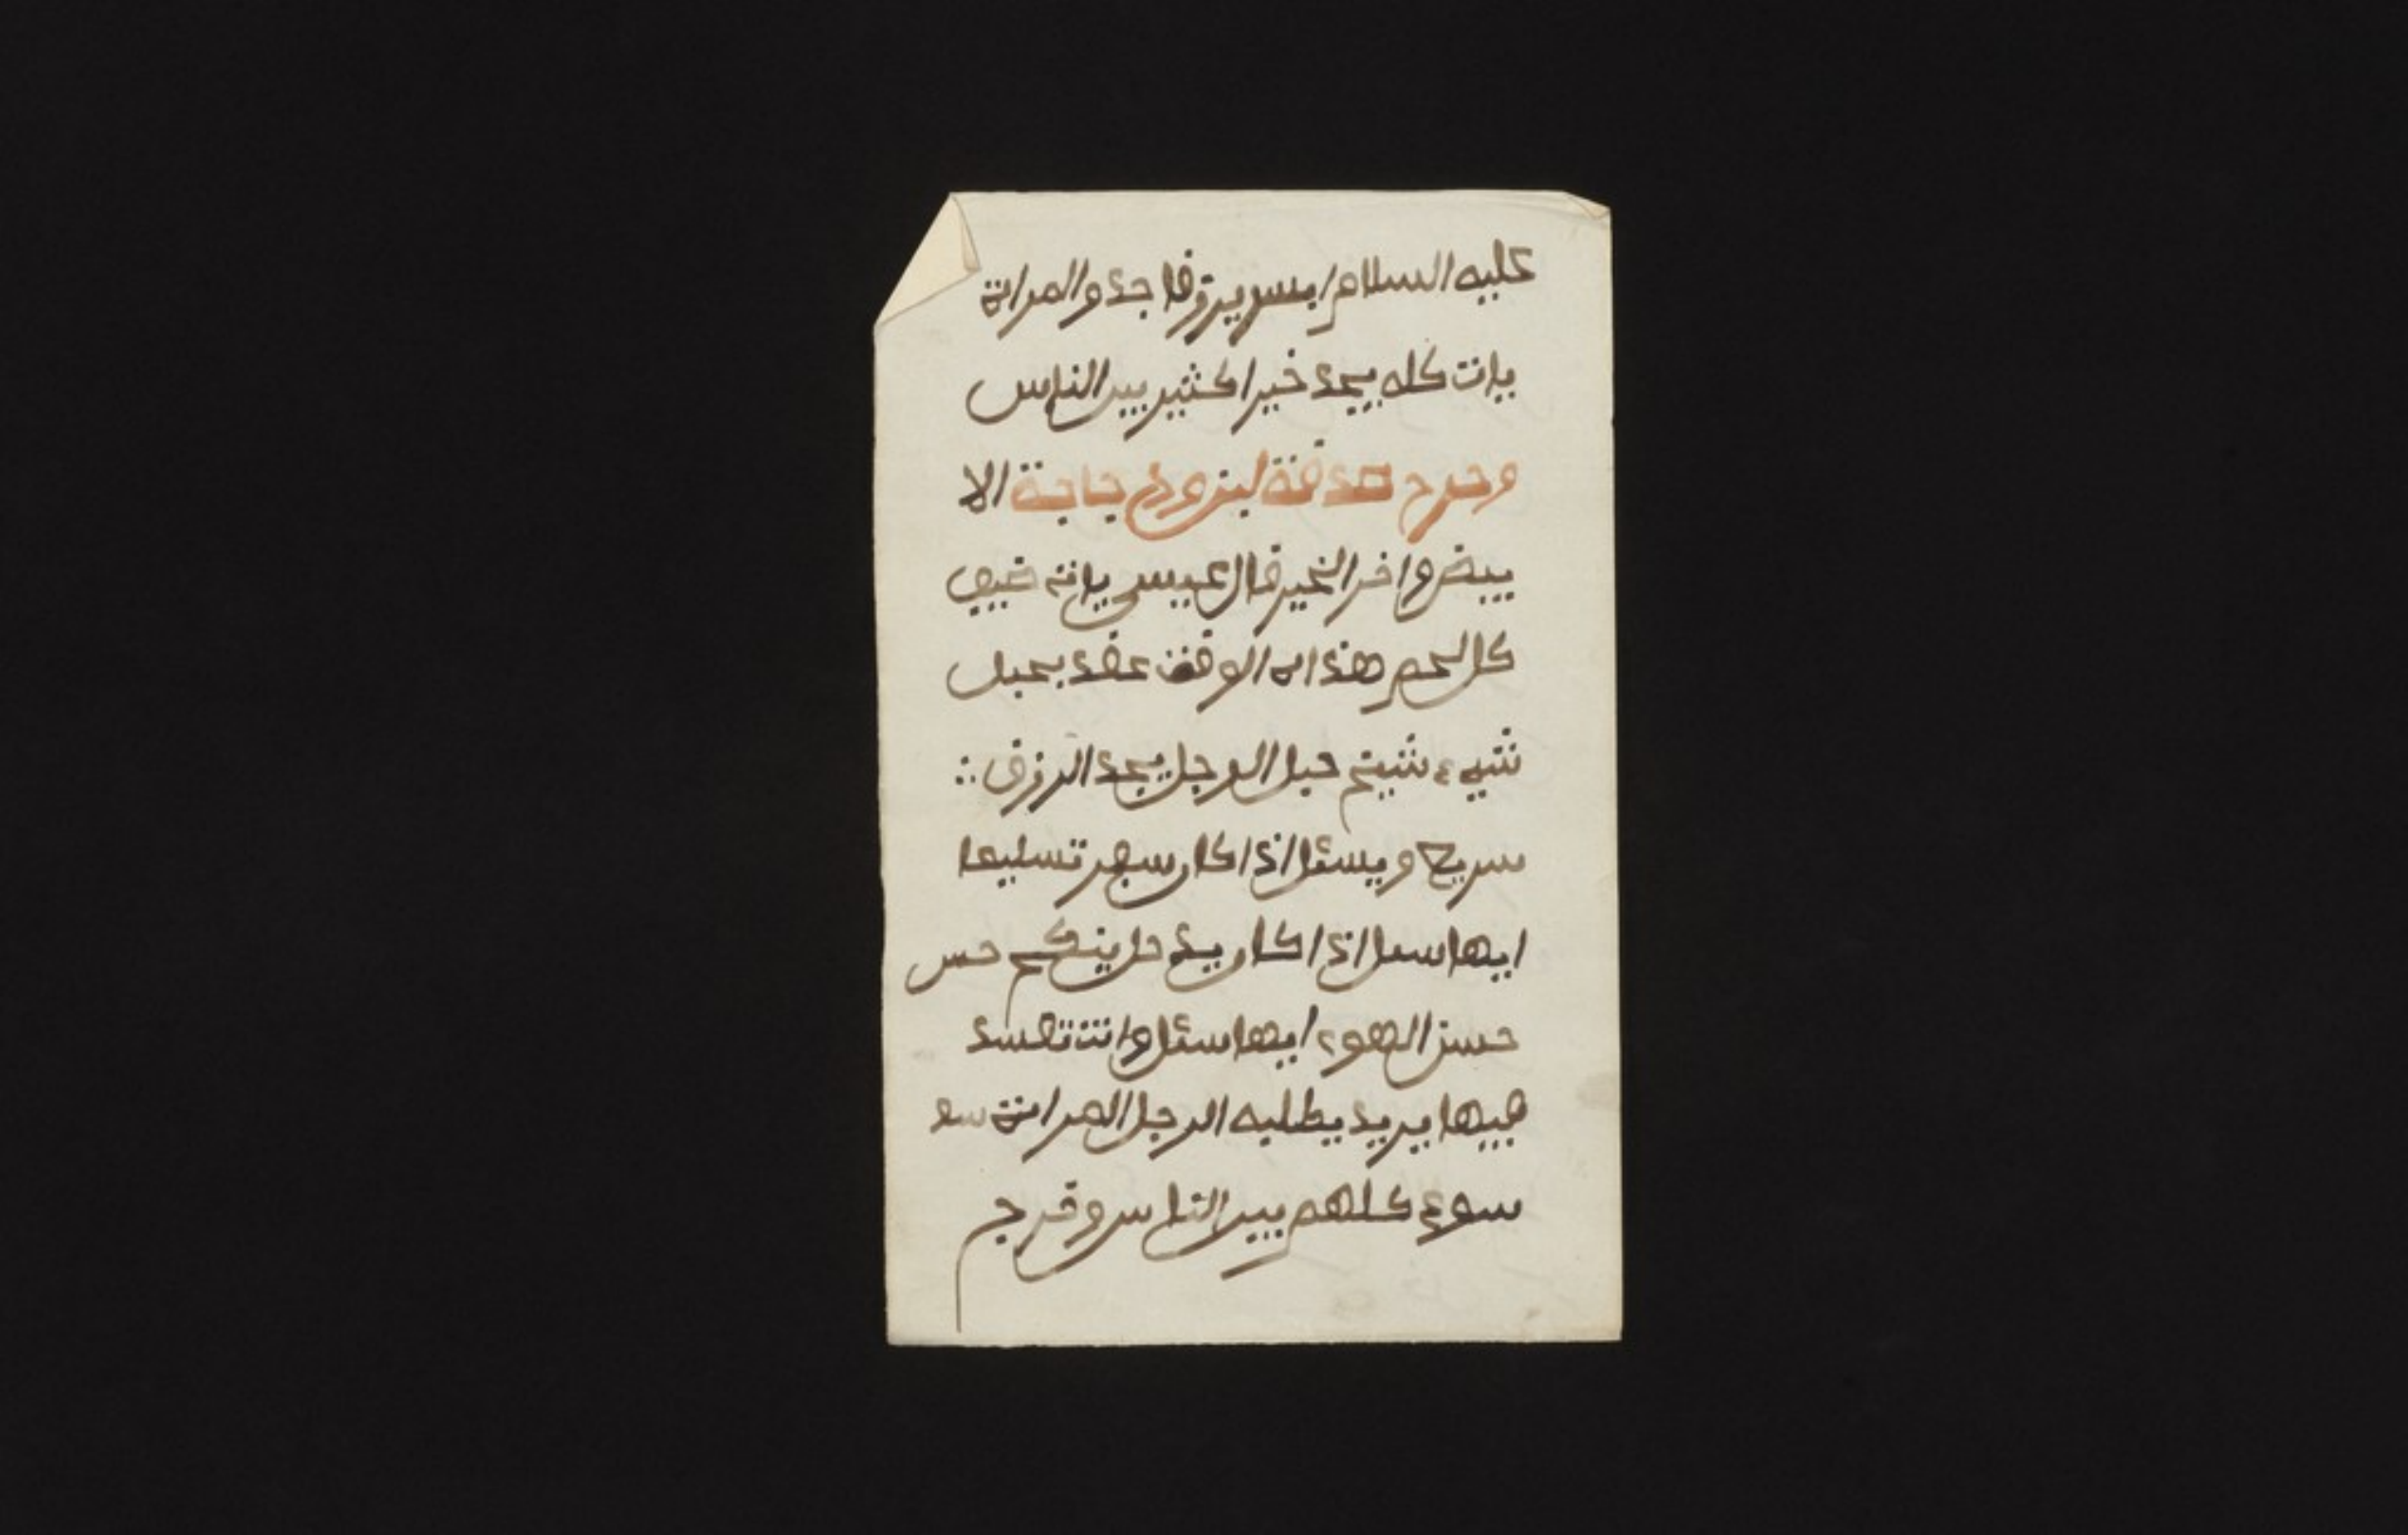 عليه السلام ابسر يرزقا جدو المراة
يانت كله يجد خيرا كثير بين الناس
وخرج صدقة ليزو دجاجة الا
بيض وافر الخير قال عيسى يانه ضيف
كل لحم هذا له الوقت عقد بحبل
شيء شيتم حبل الرجل يجد الرزق
سريع ويسئل اذا كان سهر تسليما
ايها اسل اذا كان يد خل ينكم حس
حسن الهو ايها اسئل وانت تفسد
فيها يريد يطلبه الرجل المراة سو
سوء كلهم بين الناس وفرج